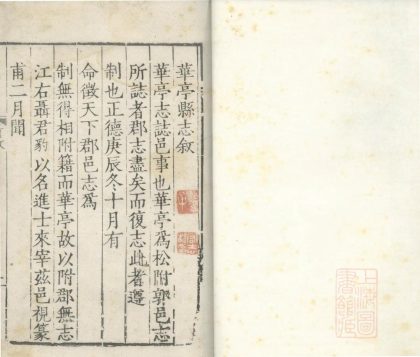 華亭縣志敘
華亭志誌邑事也華亭爲松附郭邑志
所誌者郡志盡矣而復志此者遵
制也正德庚辰冬十月有
命徵天下郡邑志爲
制無得相附籍而華亭故以附郡無志
江右聶君豹以名進士來宰茲邑視篆
甫二月聞
上海圖
書館藏